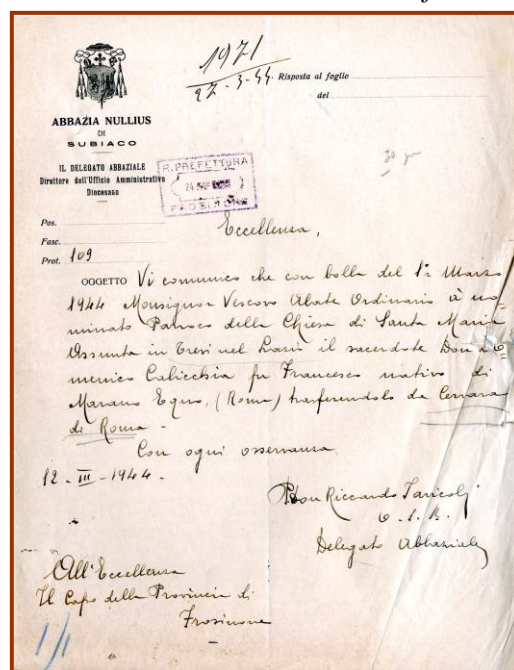 1971
27-3-44. Risposta al foglio
del
ABBAZIA NULLIUS
DI
SUBIACO
IL DELEGATO ABBAZIALE
Direttore dell'Ufficio Amministrativo
Diocesano
R. PREFETTURA
24 MAR
FROSINONE
Pos.
Fasc.
Prot. 109
Eccellenza,
OGGETTO Vi comunico che con bolla del 1° Marzo
1944 Monsignor Vescovo Abate Ordinario à no-
minato Parroco della Chiesa di Santa Maria
Assunta in Trevi nel Lazio il sacerdote Don Do-
menico Calicchia fu Francesco nativo di
Marano Equo, (Roma) trasferendolo da Cervara
di Roma -
Con ogni osservanza
12 - III - 1944 -
Don Riccardo
O. S. B.
Delegato Abbaziale
All'Eccellenza
Il Capo della Provincia di
Frosinone
1/1